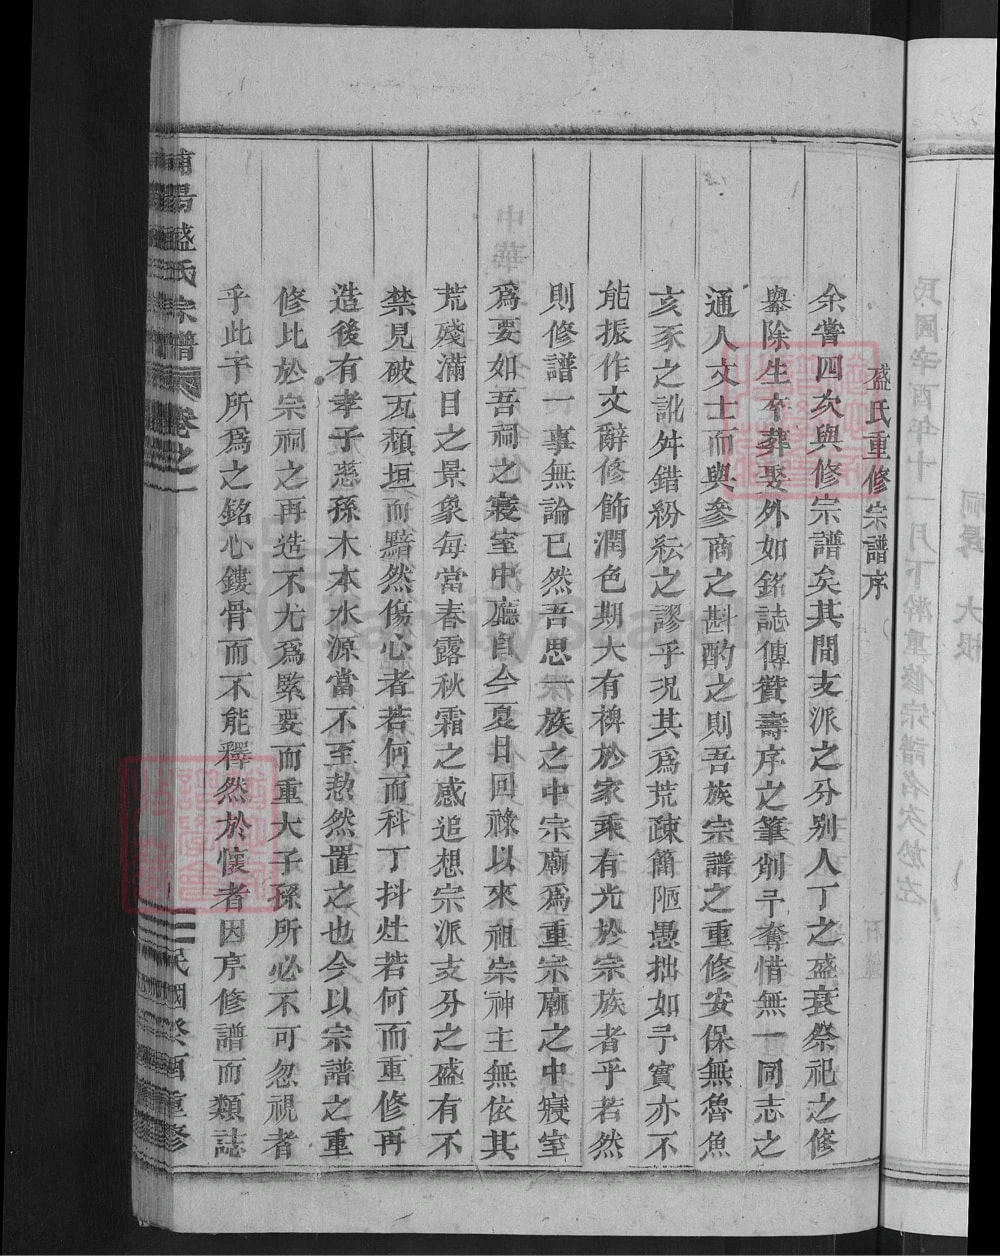 盛氏重修宗譜序
余嘗四次與修宗譜矣其間支派之分別人丁之盛衰祭祀之修
舉除生卒葬娶外如銘誌傳贊壽序之筆削予奪惜無一同志之
通人文士而與參商之斟酌之則吾族宗譜之重修安保無魯魚
亥豕之訛舛錯紛紜之謬乎況其爲荒疎簡陋愚拙如予實亦不
能振作文辭修飾潤色期大有裨於家乘有光於宗族者乎若然
則修譜一事無論已然吾思一族之中宗廟爲重宗廟之中寢室
爲要如吾祠之寢室中廳自今夏日回祿以來祖宗神主無依其
荒殘滿目之景象每當春露秋霜之感追想宗派支分之盛有不
禁見破瓦頹垣而黯然傷心者若何而科丁抖灶若何而重修再
造後有孝子慈孫木本水源當不至恝然置之也今以宗譜之重
修比於宗祠之再造不尤爲緊要而重大子孫所必不可忽視者
乎此予所爲之銘心鏤骨而不能釋然於懷者因序修譜而類誌
南陽盛氏宗譜 卷之一 民國癸酉重修